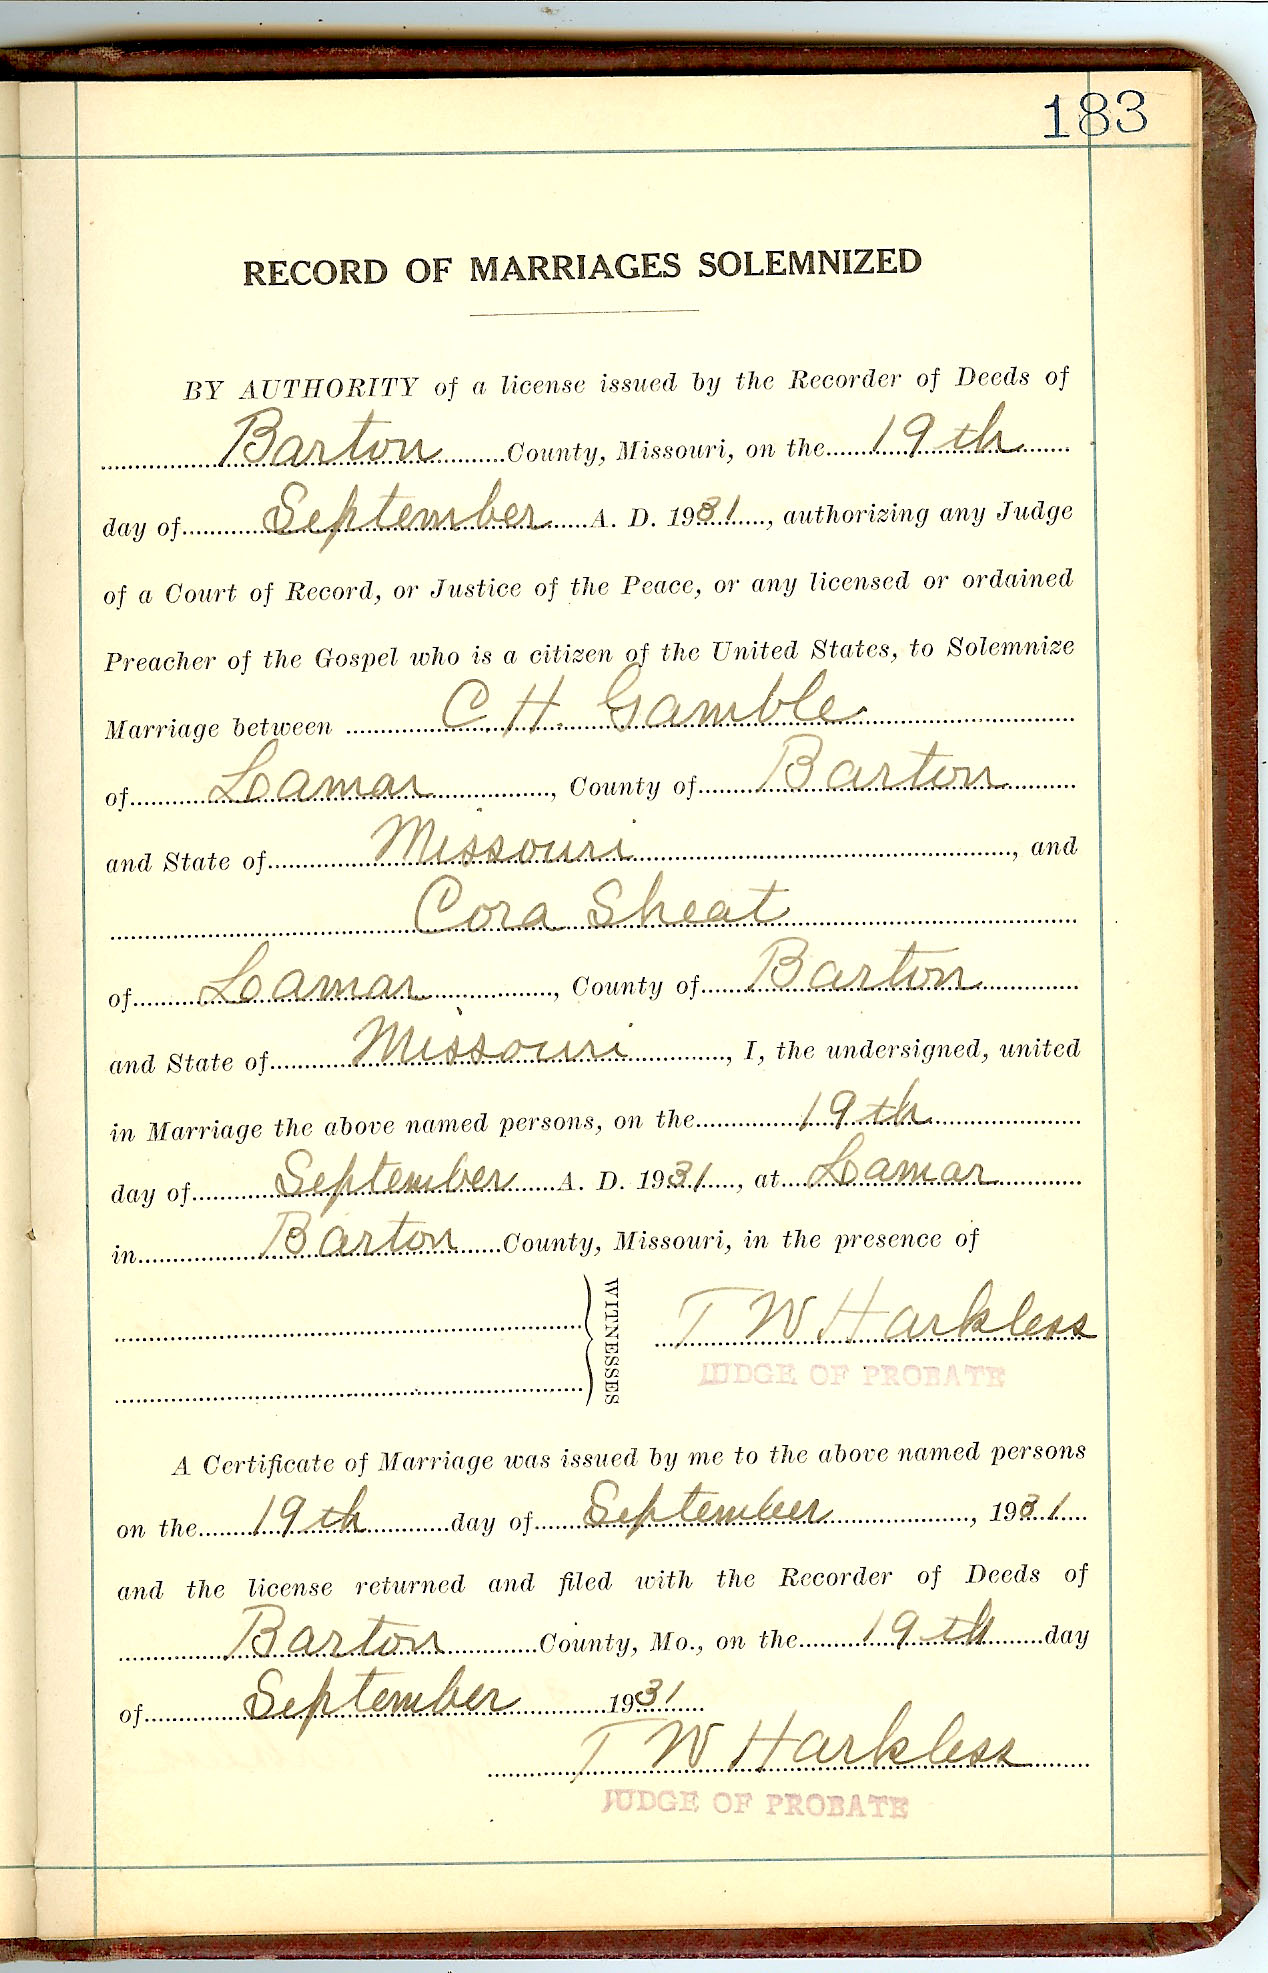 183
RECORD OF MARRIAGES SOLEMNIZED
BY AUTHORITY of a license issued by the Recorder of Deeds of
Barton County, Missouri, on the 19th
day of September A. D. 1931, authorizing any Judge
of a Court of Record, or Justice of the Peace, or any licensed or ordained
Preacher of the Gospel who is a citizen of the United States, to Solemnize
Marriage between C. H. Gamble
of Lamar, County of Barton
and State of Missouri, and
Cora Sheat
of Lamar, County of Barton
and State of Missouri, I, the undersigned, united
in Marriage the above named persons, on the 19th
day of September A. D. 1931, at Lamar
in Barton County, Missouri, in the presence of
WITNESSES
T W Harkless
JUDGE OF PROBATE
A Certificate of Marriage was issued by me to the above named persons
on the 19th day of September, 1931
and the license returned and filed with the Recorder of Deeds of
Barton County, Mo., on the 19th day
of September 1931
T W Harkless
JUDGE OF PROBATE